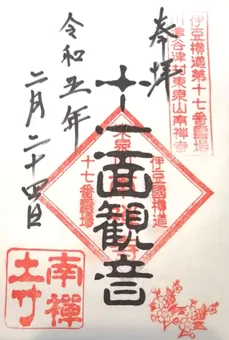 奉拝
伊豆横道第十七番霊場
川津谷津村東泉山南禅寺
十一面観音
伊豆國横道
十七番霊場
東泉
令和五年
二月二十四日
南禅寺